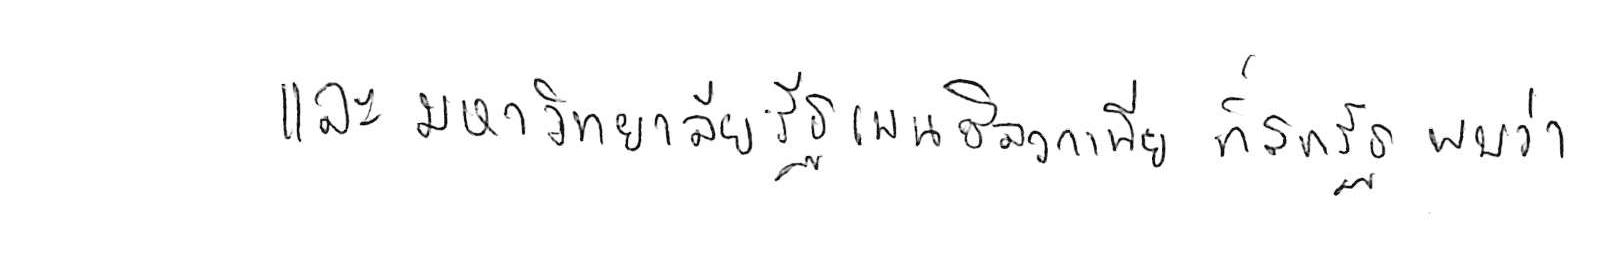 และ มหาวิทยาลัยรัฐเพนซิลวาเนีย ที่สหรัฐ พบว่า